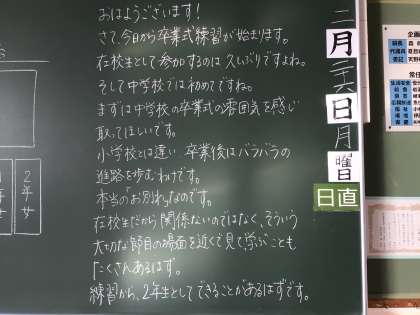 おはようございます!
さて、今日から卒業式練習が始まります。
在校生として参加するのは久しぶりですよね。
そして中学校では初めてですね。
まずは中学校の卒業式の雰囲気を感じ
取ってほしいです。
小学校とは違い 卒業後はバラバラの
進路を歩むわけです。
本当の「お別れ」なのです。
在校生だから関係ないのではなく、そういう
大切な節目の場面を近くで見て学ぶことも
たくさんあるはず。
練習から、2年生としてできることがあるはずです。
二
月
二六
日
月
曜
日直
2年女
企画
常任